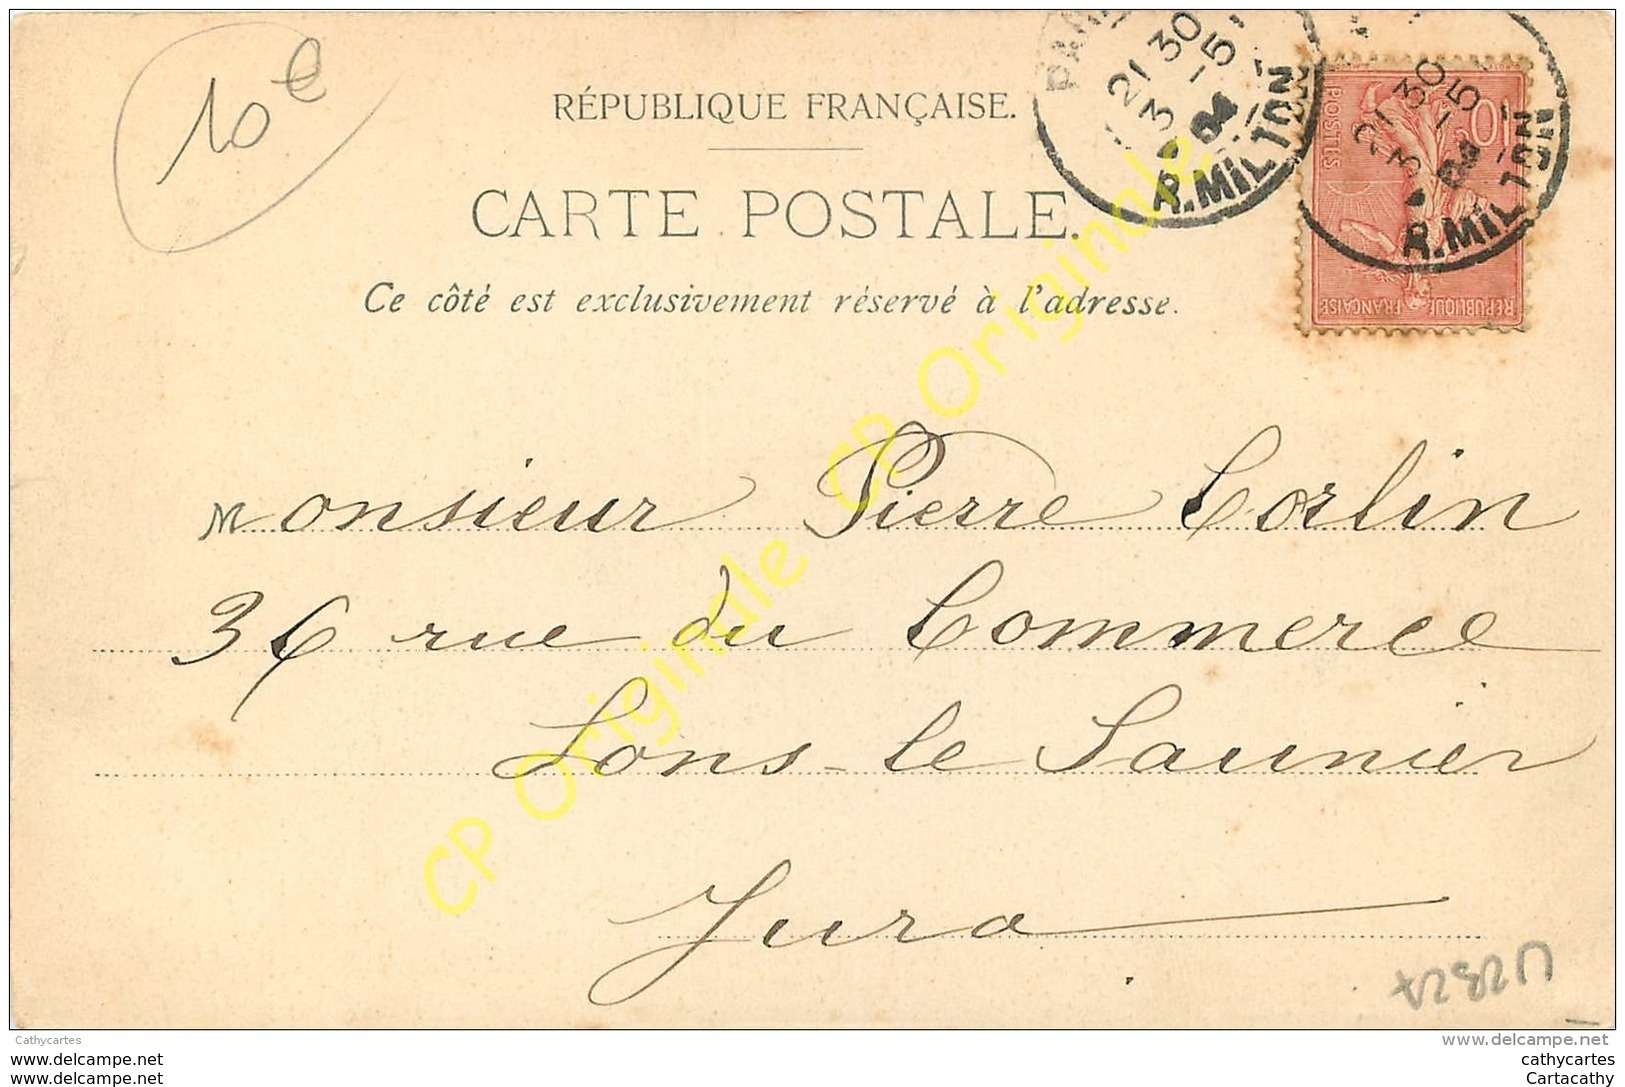 10e
RÉPUBLIQUE FRANÇAISE.
CARTE POSTALE.
Ce côté est exclusivement réservé à l'adresse.
21 30
3 - 5
04
R. MILTON
21 30
3 - 5
04
R. MILTON
10
POSTES
RÉPUBLIQUE FRANÇAISE
Monsieur Pierre Corlin
36 rue du Commerce
Lons-le Saunier
Jura
CP Originale CP Originale
Cathycartes
www.delcampe.net
www.delcampe.net
www.delcampe.net
cathycartes
Cartacathy